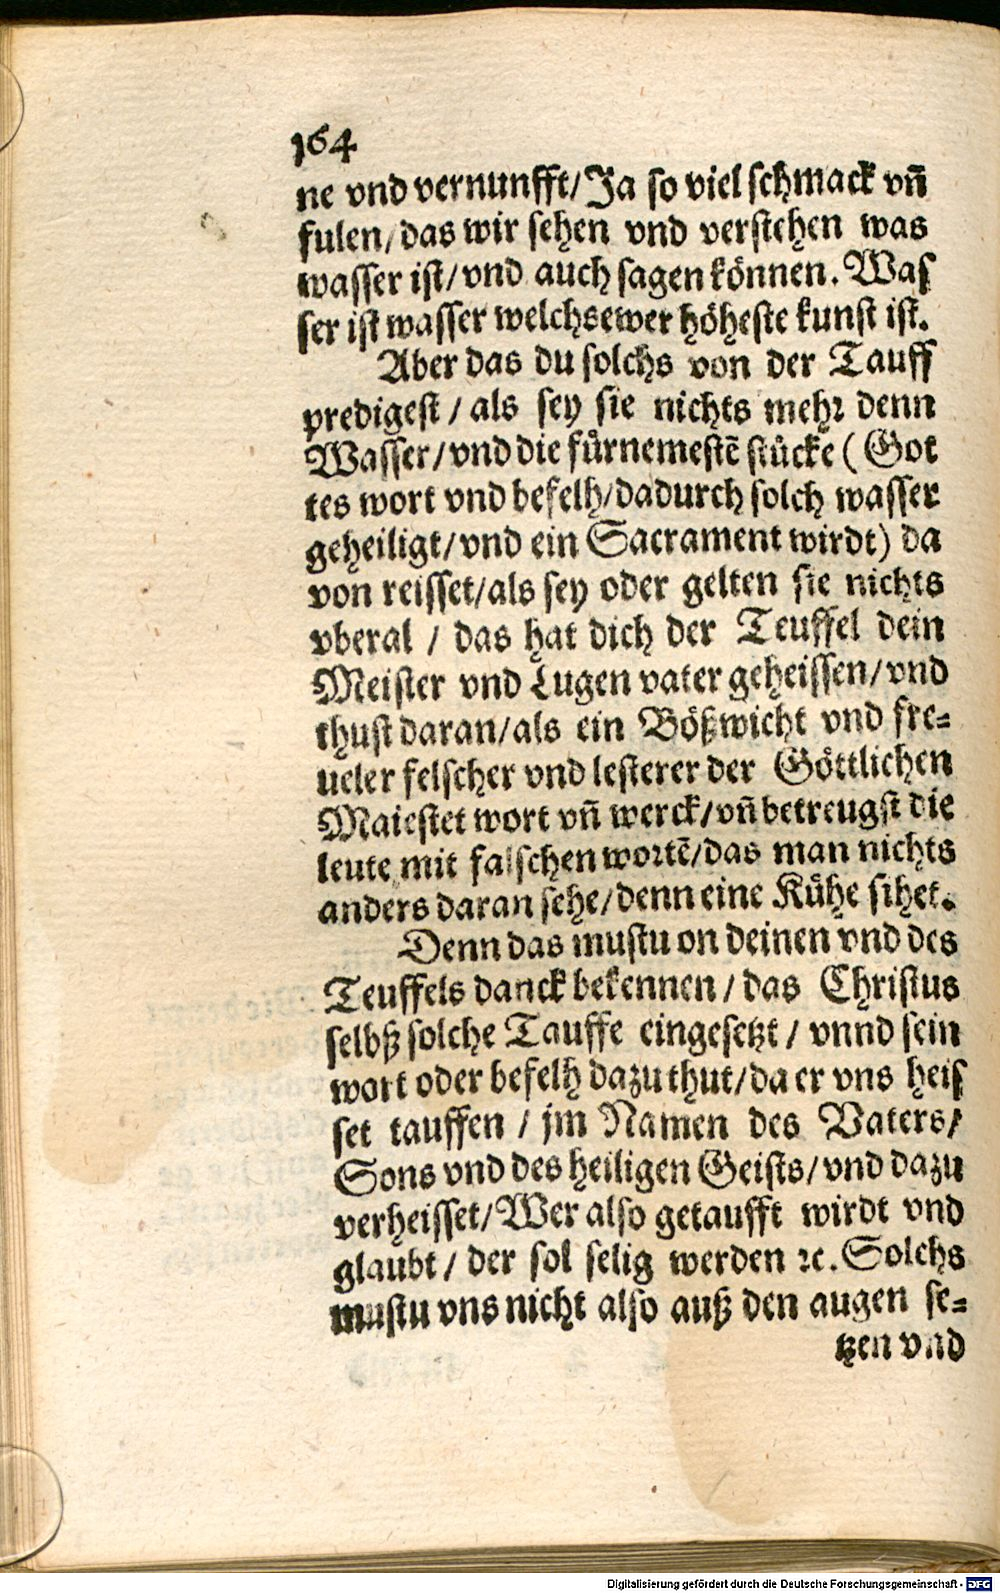 164
ne vnd vernunfft/Ja so viel schmack vn̄
fulen/das wir sehen vnd verstehen was
wasser ist/vnd auch sagen können. Was
ser ist wasser welchs ewer höheste kunst ist.
Aber das du solchs von der Tauff
predigest / als sey sie nichts mehr denn
Wasser/vnd die fürnemestē stücke ( Got
tes wort vnd befelh/dadurch solch wasser
geheiligt/vnd ein Sacrament wirdt) da
von reisset/als sey oder gelten sie nichts
vberal / das hat dich der Teuffel dein
Meister vnd Lugen vater geheissen/vnd
thust daran/als ein Bößwicht vnd fre=
ueler felscher vnd lesterer der Göttlichen
Maiestet wort vn̄ werck/vn̄ betreugst die
leute mit falschen wortē/das man nichts
anders daran sehe/denn eine Kühe sihet.
Denn das mustu on deinen vnd des
Teuffels danck bekennen / das Christus
selbß solche Tauffe eingesetzt / vnnd sein
wort oder befelh dazu thut/da er vns heis
set tauffen / jm Namen des Vaters/
Sons vnd des heiligen Geists/vnd dazu
verheisset/Wer also getaufft wirdt vnd
glaubt / der sol selig werden ꝛc. Solchs
mustu vns nicht also auß den augen se=
tzen vnd
Digitalisierung gefördert durch die Deutsche Forschungsgemeinschaft - DFG